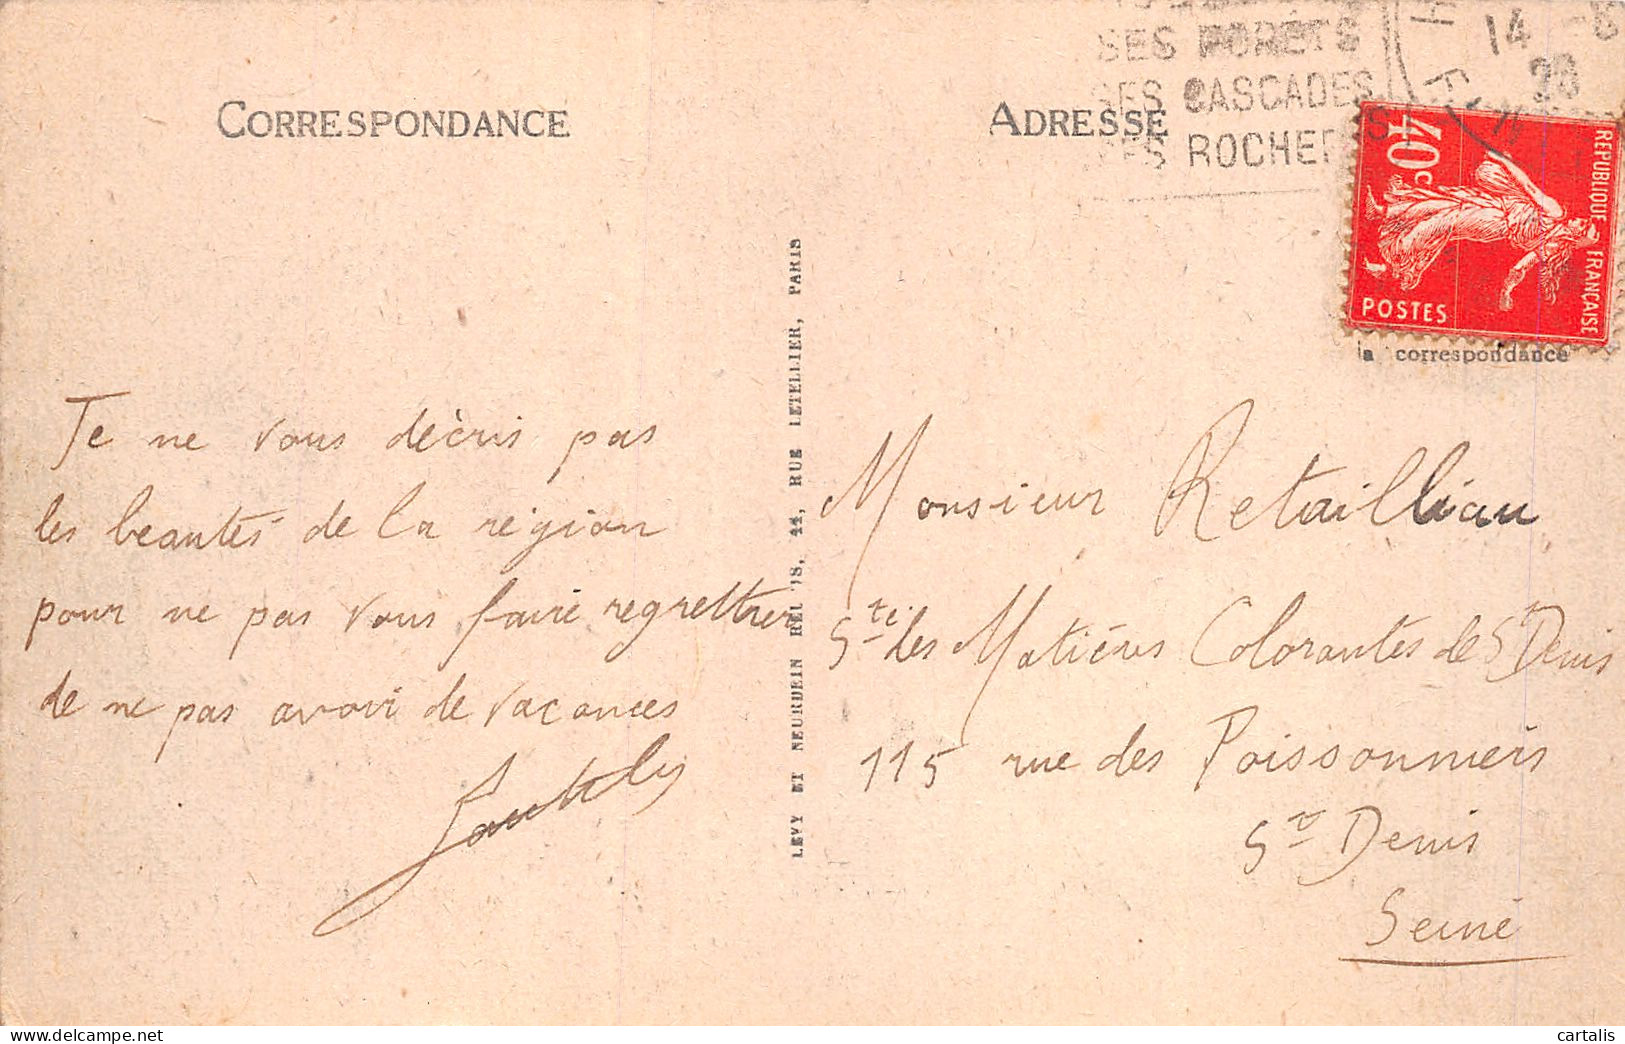 CORRESPONDANCE
ADRESSE
SES FORÊTS
SES CASCADES
SES ROCHERS
14 -8
28
40c
REPUBLIQUE FRANÇAISE
POSTES
la correspondance
Je ne vous décris pas
les beautés de la région
pour ne pas vous faire regretter
de ne pas avoir de vacances
LEVY ET NEURDEIN RÉUNIS, 44, RUE LETELLIER, PARIS
Monsieur Retailliau
Sté des Matières Colorantes de St Denis
115 rue des Poissonniers
St Denis
Seine
cartalis
www.delcampe.net